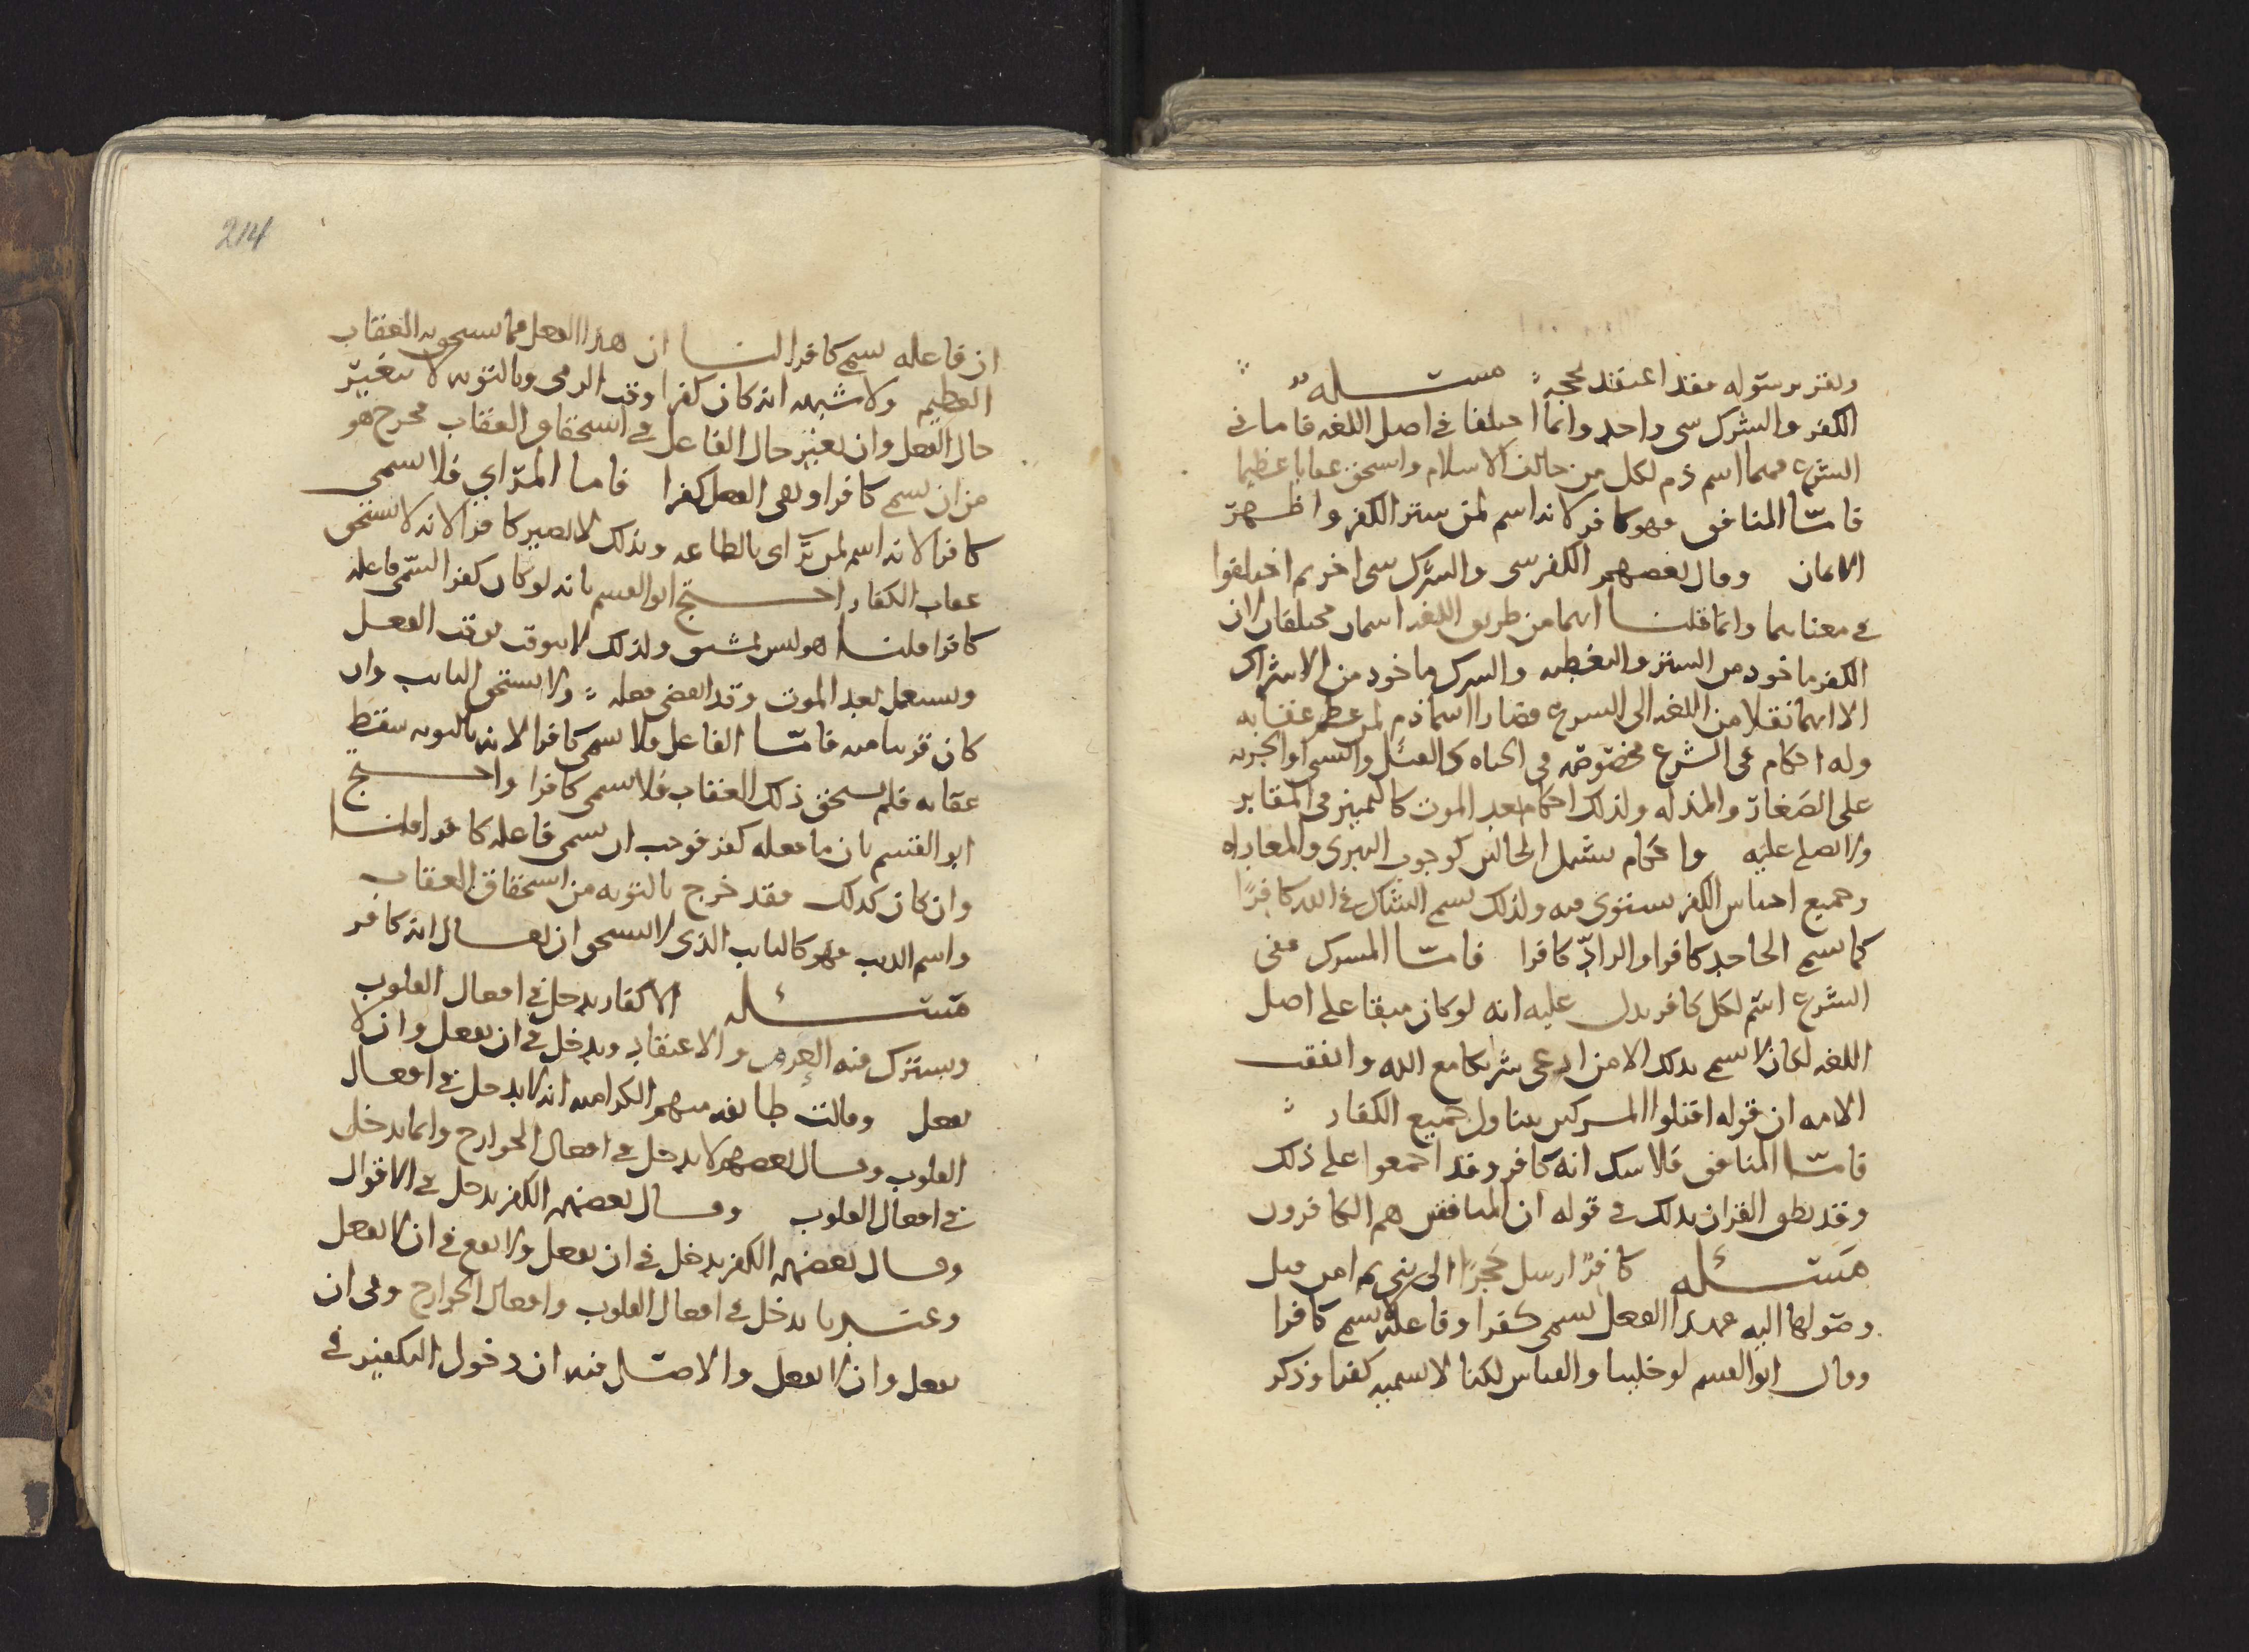 ويقر برسوله فقد اعتقد بحجة مسئلة
الكفر والشرك شي واحد وانما اختلفا في اصل اللغة فاما في
الشرع فهما اسم ذم لكل من خالف الاسلام واستحق عقابا عظيما
فامّا المنافق فهو كافر لانه اسم لمن ستر الكفر واظهر
الايمان وقال بعضهم الكفر شي والشرك شي اخر ثم اختلفوا
في معناهما وانما قلنا انهما من طريق اللغة اسمان مختلفان لان
الكفر ماخوذ من الستر والتغطية والشرك ماخوذ من الاشراك
الا انهما نقلا من اللغة الى الشرع فصارا اسما ذم لمن عظم عقابه
وله احكام في الشرع مخصوصة في الحياة كالقتل والسبي او الجزية
على الصَغار والمذلة ولذلك احكام بعد الموت كالتمييز في المقابر
ولا يصلى عليه واحكام تشمل الحالين كوجوب التبري والمعاداه
وجميع اجناس الكفر يستوي فيه ولذلك يسمى الشاك في الله كافرًا
كما يسمى الجاحد كافرا والرادّ كافرا فامّا المشرك ففي
الشرع اسم لكل كافر يدل عليه انه لو كان مبقا على اصل
اللغة لكان لا يسمى بذلك الا من ادعى شريكا مع الله واتفقت
الامة ان قوله اقتلوا المشركين يتناول جميع الكفار
فامّا المنافق فلا شك انه كافر وقد اجمعوا على ذلك
وقد نطق القران بذلك في قوله ان المنافقين هم الكافرون
مسئلة كافرًا ارسل حجرًا الى نبي ثم امن قبل
وصولها اليه فهذا الفعل يسمى كفرا وفاعله لا يسمى كافرا
وقال ابو القسم لو خلينا والقياس لكنا لا نسميه كفرا وذكر
214
ان فاعله يسمى كافرا لنا ان هذا الفعل مما يستحق به العقاب
العظيم ولا شبهة انه كان كفرا وقت الرمي وبالتوبة لا يتغير
حال الفعل وان تغير حال الفاعل في استحقاق العقاب فخرج هو
من ان يسمى كافرا وبقي الفعل كفرا فاما المرّاي فلا يسمى
كافرا لانه اسم لمن يراي بالطاعة وبذلك لا يصير كافرا لانه لا يستحق
عقاب الكفار احتج ابو القسم بانه لو كان كفرا لسمّي فاعله
كافرا قلنا هو ليس بمشتق ولذلك لا يوقت بوقت الفعل
ويستعمل بعد الموت وقد انقضى فعله ولا يستحق التايب وان
كان قريبا منه فامّا الفاعل فلا يسمى كافرا لانه بالتوبة سقط
عقابه فلم يستحق ذلك العقاب فلا يسمى كافرا واحتج
ابو القسم بان ما فعله كفر فوجب ان يسمى فاعله كافرا قلنا
وان كان كذلك فقد خرج بالتوبة من استحقاق العقاب
واسم الذنب فهو كالتايب الذي لا يستحق ان يقال انه كافر
مسئلة الاكفار يدخل في افعال القلوب
ويشترك فيه العزم والاعتقاد ويدخل في ان يفعل وان لا
يفعل وقالت طايفة منهم الكرامية انه لا يدخل في افعال
القلوب وقال بعضهم لا يدخل في افعال الجوارح وانما يدخل
في افعال القلوب وقال بعضهم الكفر يدخل في الاقوال
وقال بعضهم الكفر يدخل في ان يفعل ولا يقع في ان لا يفعل
وعندنا يدخل في افعال القلوب وافعال الجوارح وفي ان
يفعل وان لا يفعل والاصل فيه ان دخول التكفير في